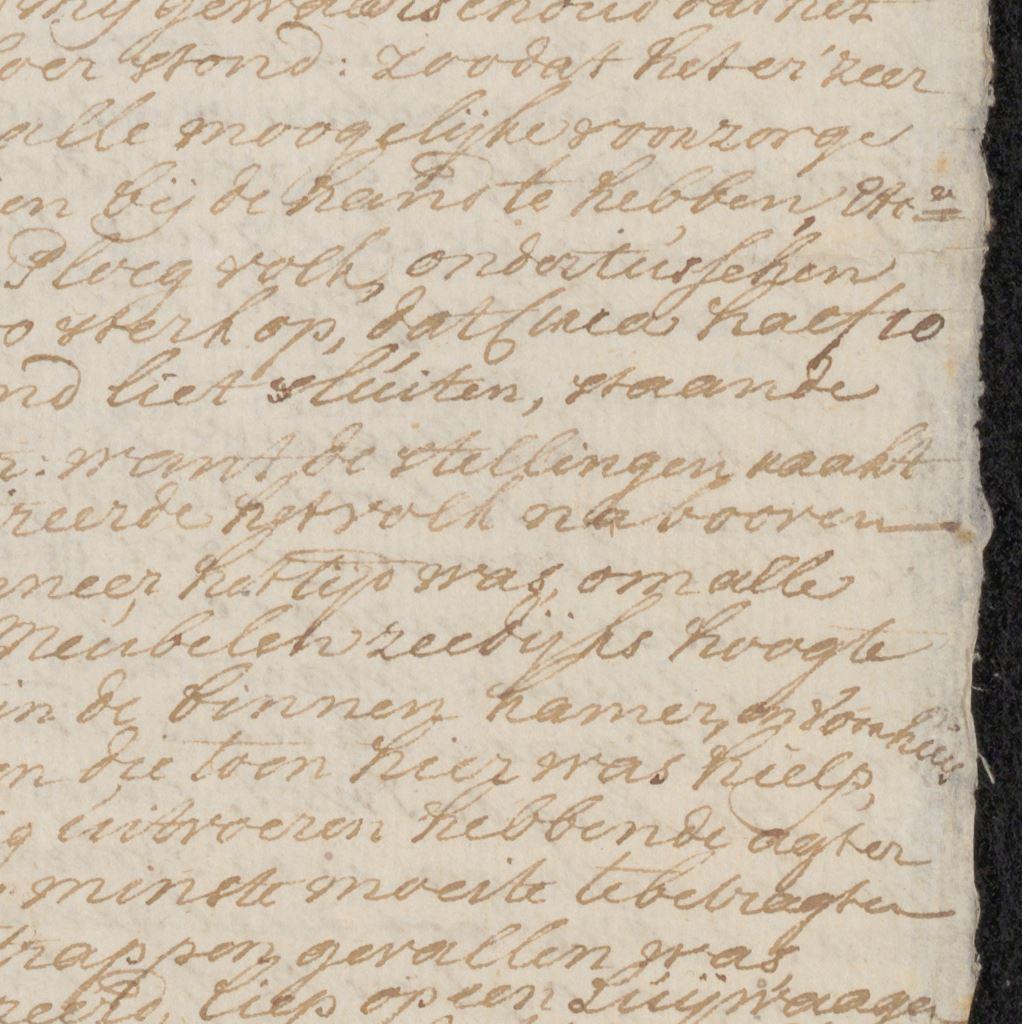 mij gewaarschouwd dat het
oer stond: zoodat het er zeer
alle moogelijke voorzorge
en bij de hand te hebben, Etc
Ploeg volk, ondertusschen
o sterk op, dat half 10
nd liet sluiten, staande
want de stellingen raakt
eerde het volk na booven
neer het tijd was, om alle
Meubelen zeedijks hoogte
in de binnen kamer, en voorhuis
en die toen hier was hielp,
g uitvoeren hebbende agter
minste moeite te betragten
trappen gevallen was,
liep op een Zuijwaagen